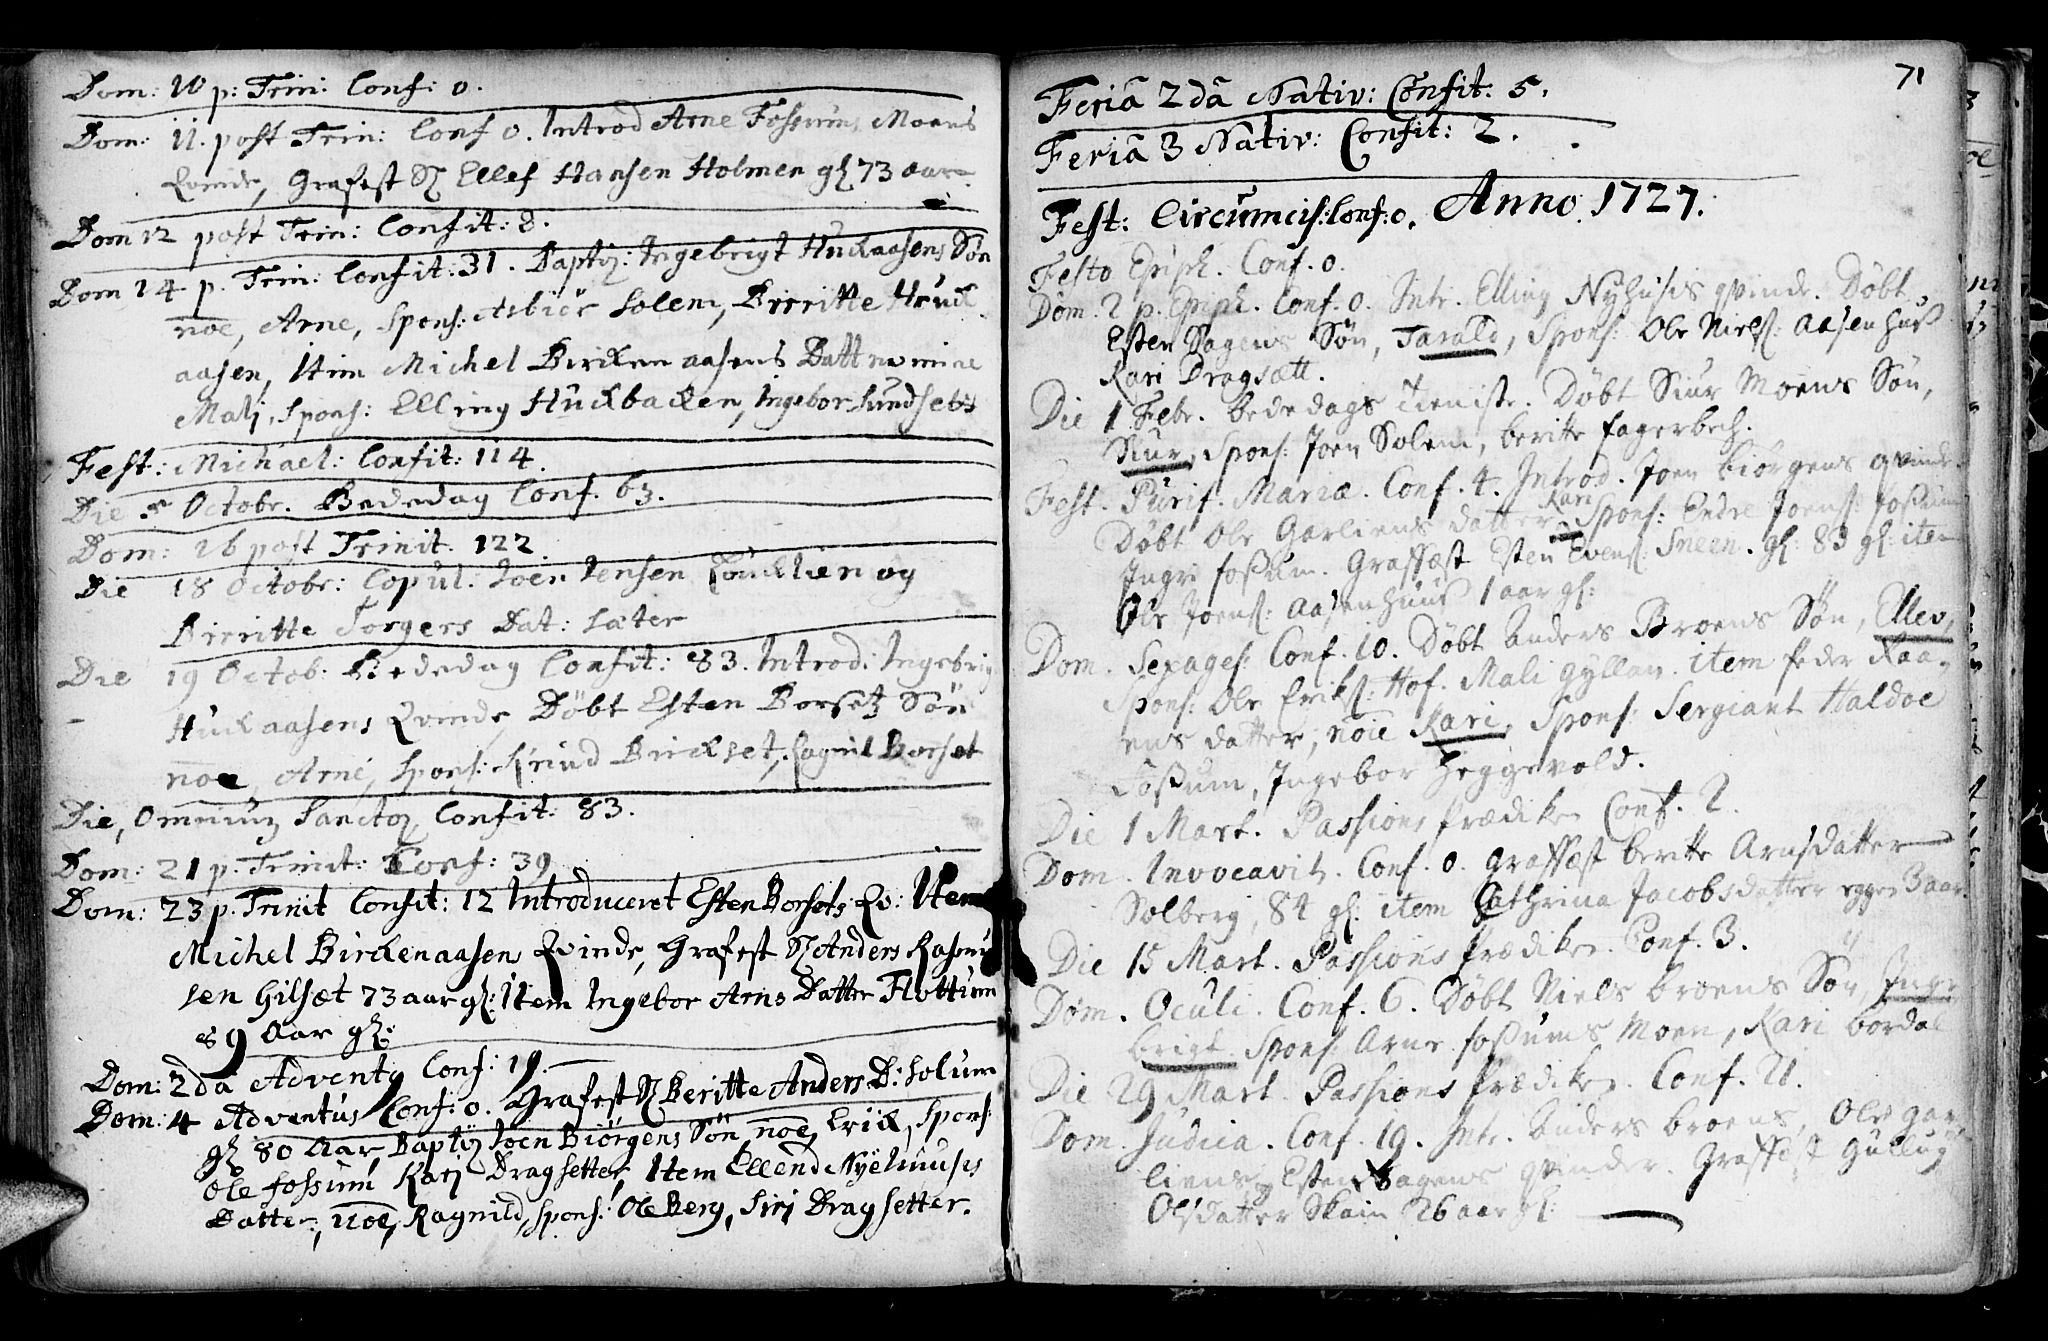 Dom: 10 p: Trin: Conf: 0.
Dom: 11. post Trin: Conf 0. Introd Arne Fossums Moens
Qvinde, Grafest Sl Ellef Hansen Holmen gl 73 aar
Dom 12 post Trin: Confit: 8.
Dom 14 p. Trin: Confit: 31. Baptiz: Ingebrigt Huckaasens Søn
noe, Arne, Spons: Asbiør Solem, Birritte Huck
aasen, Item Michel Birckenaasens Datt nomine
Mali, Spons: Elling Huckbacken, Ingebor Sundsets
Fest: Michael: Confit: 114.
Die Octobr. Bededag Conf. 63.
Dom: 16 post Trinit. 122.
Die 18 Octobr: Copul. Joen Jensen og
Birritte Torgers Dat: Sæter
Die 19 Octob. Bededag Confit: 83. Introd: Ingebrig
Huckaasens Qvinde, Döbt Esten Borsetz Sön
noe, Arne, Spons: Knud Birckset, Ragnil Borset
Die, Omnium Sanctoz Confit: 83.
Dom: 21 p. Trinit: Conf: 39
Dom: 23 p. Trinit Confit: 12 Introduceret Esten Borsets Qv: Item
Michel Birckenaasen Qvinde, Grafest Sl Anders Rasmu
sen Gilset 73 aar gl: Item Ingebor Arns Datter Flottum
89 Aar gl:
Dom: 2da Adventz Conf: 19.
Dom: 4 Adventus Conf: 0. Grafest Sl Beritte Anders D: Solum
gl 80 Aar, Baptiz Joen Biörgens Sön, noe, Erick, Spons:
Ole Fossum Kari Dragsetter, Item Ellend Nyehuusis
Datter, noe, Ragnild, Spons: Ole Berg, Siri Dragsetter.
71
Feria 2da Nativ: Confit: 5.
Feria 3 Nativ: Confit: 2.
Fest: Circumcis: Conf: 0. Anno. 1727.
Festo Epiph. Conf. 0.
Dom. 2 p. Epiph. Conf. 0. Intr. Elling Nyhusis qvinde. Döbt
Esten Hagens Sön, Tarald, Spons: Ole Niels: Aasenhuus
Kari Dragsætt.
Die 1 Febr. bededags tieniste. Döbt Siur Moens Sön,
Siur, Spons: Joen Solem, beritte fagerbech.
Fest. Purif. Mariæ. Conf. 4. Introd. Joen biörgens qvinde
Döbt Ole Garliens datter Kari Spons: Endre Joens: foßum
Ingri foßum. Graffæst Esten Evens: Sneen. gl: 83 gl: item
Ole Joens: Aasenhuus 1 aar gl:
Dom. Sexages: Conf. 10. Döbt Anders Broens Sön, Ellev,
Spons: Ole Eriks: Hof. Mali Gyllan. item Peder Kaa-
ens datter, noie Kari, Spons: Sergeant Haldoe
Foßum, Ingebor Heggevold.
Die 1 Mart. Passions Prædiken Conf. 2.
Dom. Invocavit. Conf. 0. Graffæst beritte Arnsdatter
Solberg, 84 gl: item Cathrina Jacobsdatter 3 aar.
Die 15 Mart. Passions Prædiken. Conf. 3.
Dom. Oculi. Conf. 6. Döbt Niels broens Sön, Inge
brigt Spons: Arne foßums Moen, Kari bordal
Die 29 Mart. Passions Prædiken. Conf. 21.
Dom. Judica. Conf. 19. Intr. Anders broens, Ole gar
liens, Esten Hagens qvinder. Graffæst Gullug
Olsdatter Skain 26 aar gl: